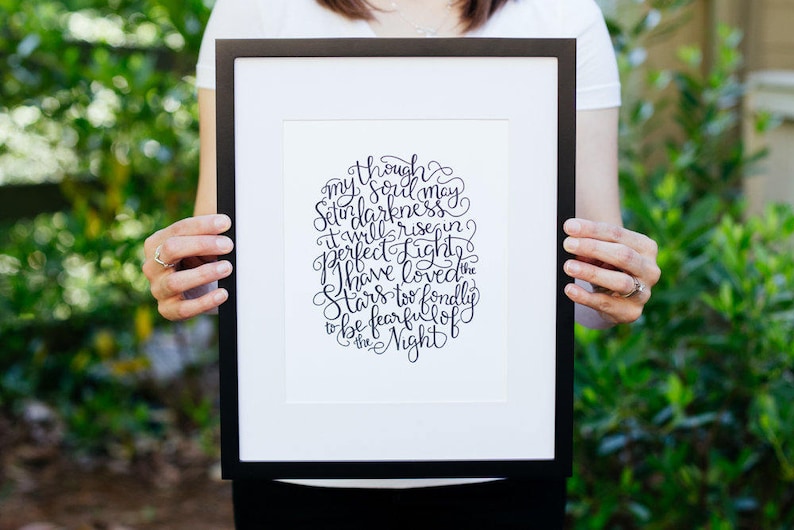 though
my soul may
Set in darkness
it will rise in
perfect Light
I have loved the
Stars too fondly
to be fearful of
the Night